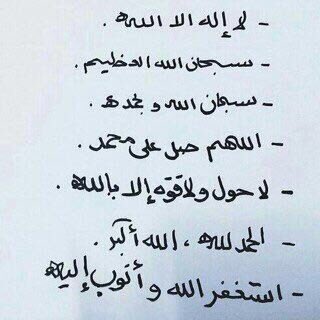 - لا إله الا الله .
- سبحان الله العظيم .
- سبحان الله وبحمده .
- اللهم صل على محمد .
- لا حول ولا قوه إلا بالله .
- الحمد لله ، الله أكبر .
- استغفر الله وأتوب إليه